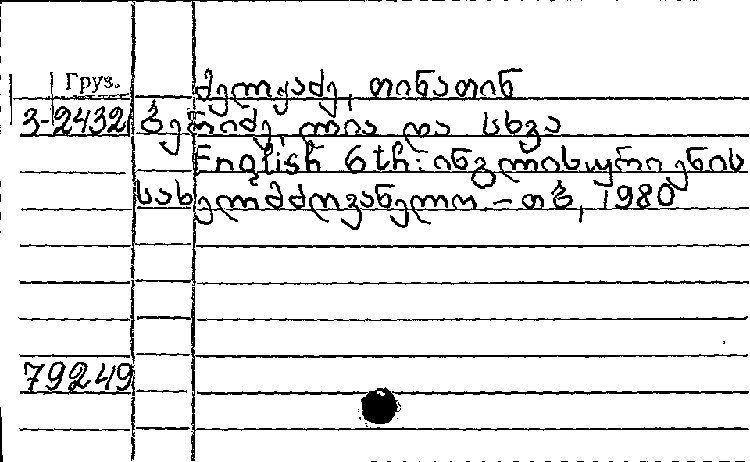 Груз. მელქაძე, თინათინ
3-2432 ბერიძე, ლია და სხვა
English 6th: ინგლისური ენის
სახელმძღვანელო. – თბ., 1980
79249